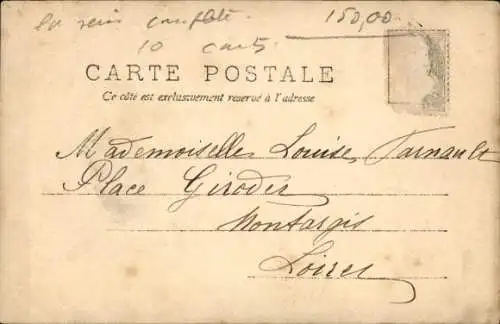 La série complète 150,00
10 cartes
CARTE POSTALE
Ce côté est exclusivement reservé à l'adresse
Mademoiselle Louise Tarnault
Place Girodet
Montargis
Loiret